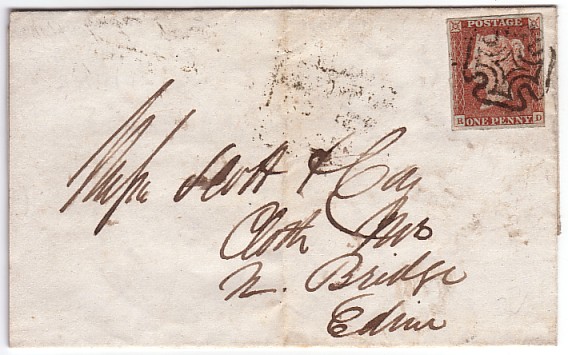 POSTAGE
ONE PENNY
B D
Messrs Scott & Co
Cloth
N. Bridge
Edinr